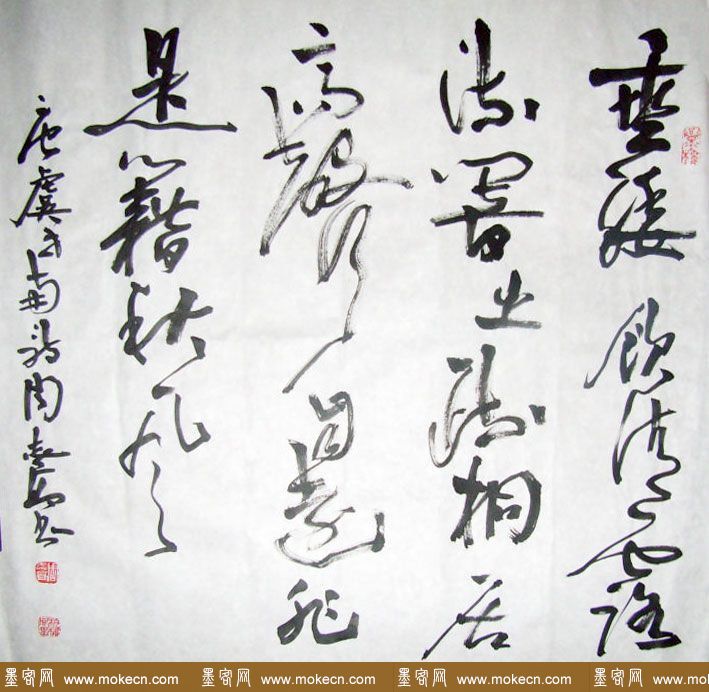 垂緌飲清露
流響出疏桐居
高聲自遠非
是藉秋風
唐虞世南詩周書
墨客网 www.mokecn.com 墨客网 www.mokecn.com 墨客网 www.mokecn.com 墨客网 www.mokecn.com